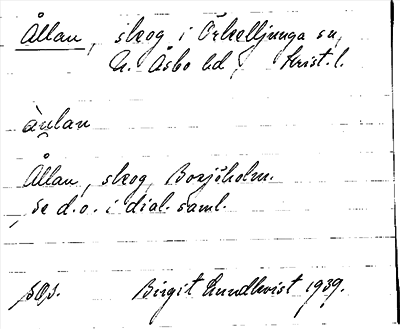 Ållan, skog i Örkelljunga sn,
N. Åsbo hd, Krist. l.
àu̯lan
Ållan, skog, Boajöholm.
se d.o. i dial. saml.
Birgit Lundkvist 1939.